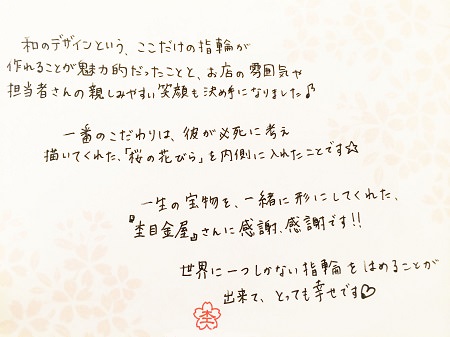 和のデザインという、ここだけの指輪が
作れることが魅力的だったことと、お店の雰囲気や
担当者さんの親しみやすい笑顔も決め手になりました♪
一番のこだわりは、彼が必死に考え
描いてくれた、「桜の花びら」を内側に入れたことです☆
一生の宝物を、一緒に形にしてくれた、
『杢目金屋』さんに感謝、感謝です!!
世界に一つしかない指輪をはめることが
出来て、とっても幸せです♡
杢